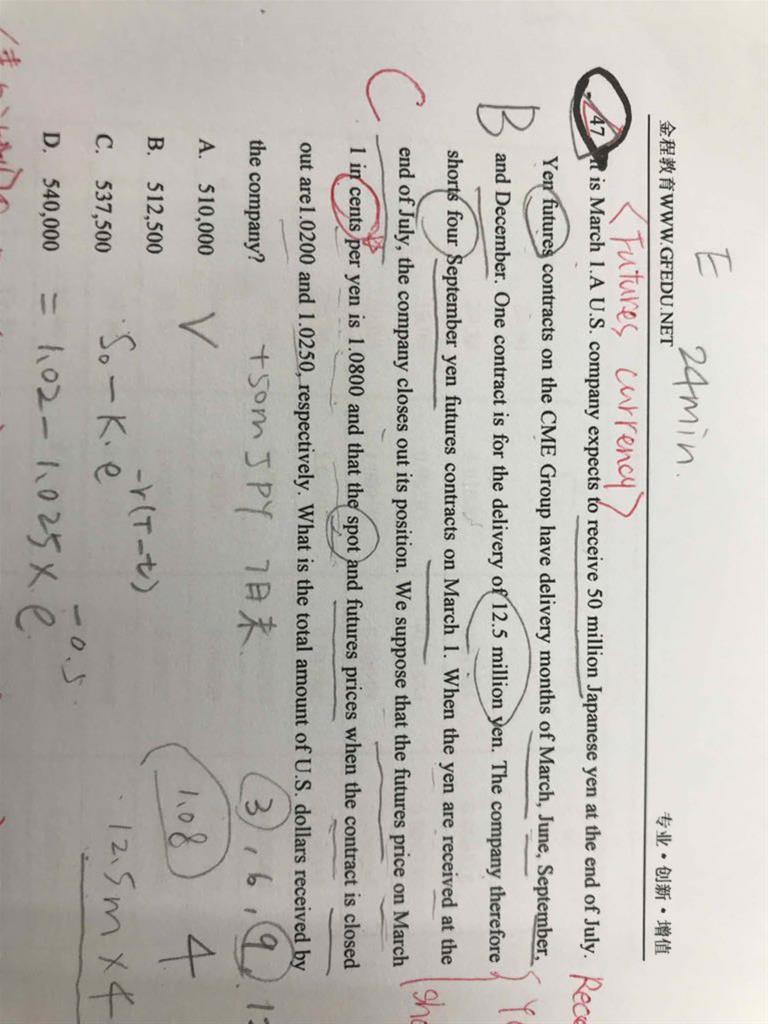 E 24min.
金程教育WWW.GFEDU.NET 专业·创新·增值
<Futures currency>
47 is March 1.A U.S. company expects to receive 50 million Japanese yen at the end of July.
Yen futures contracts on the CME Group have delivery months of March, June, September,
B and December. One contract is for the delivery of 12.5 million yen. The company therefore
shorts four September yen futures contracts on March 1. When the yen are received at the
C end of July, the company closes out its position. We suppose that the futures price on March
1 in cents per yen is 1.0800 and that the spot and futures prices when the contract is closed
out are1.0200 and 1.0250, respectively. What is the total amount of U.S. dollars received by
the company? +50m JPY 7月末 3, 6, 9,
A. 510,000 V 4
B. 512,500 1.08
C. 537,500 S₀ - K·e -r(T-t) 12.5m×4
D. 540,000 = 1.02 - 1.025×e -0.5